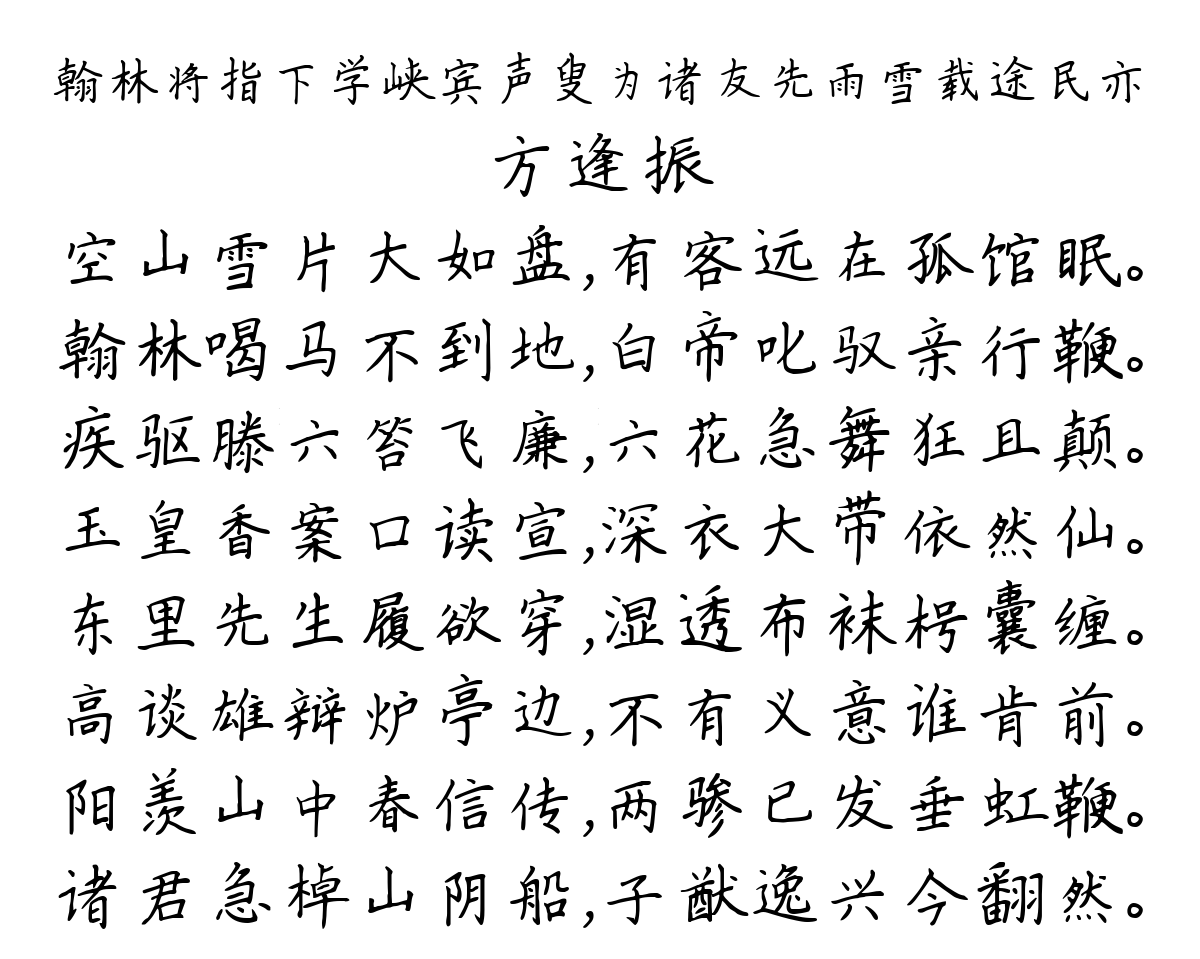 翰林将指下学峡宾声叟为诸友先雨雪载途民亦
方逢振
空山雪片大如盘,有客远在孤馆眠。
翰林喝马不到地,白帝叱驭亲行鞭。
疾驱滕六笞飞廉,六花急舞狂且颠。
玉皇香案口读宣,深衣大带依然仙。
东里先生履欲穿,湿透布袜枵囊缠。
高谈雄辩炉亭边,不有义意谁肯前。
阳羡山中春信传,两骖已发垂虹鞭。
诸君急棹山阴船,子猷逸兴今翻然。